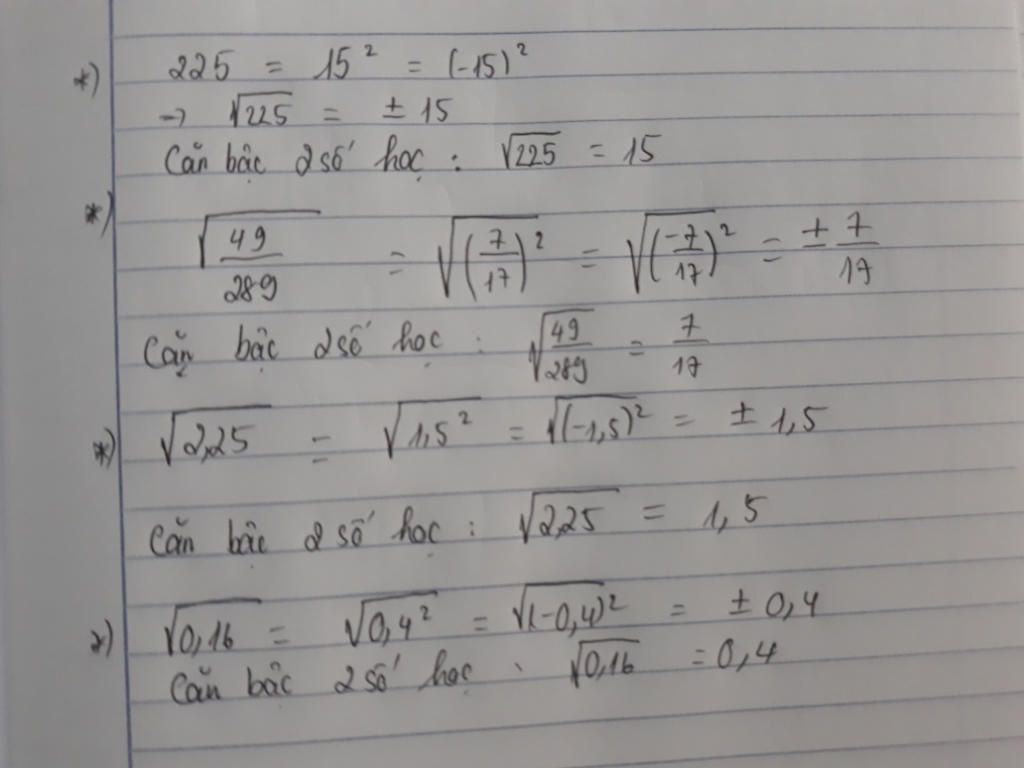 *) 225 = 15² = (-15)²
→ √225 = ± 15
Căn bậc 2 số học : √225 = 15
*) √(49/289) = √((7/17)²) = √((-7/17)²) = ± 7/17
Căn bậc 2 số học : √(49/289) = 7/17
*) √2,25 = √1,5² = √(-1,5)² = ± 1,5
Căn bậc 2 số học : √2,25 = 1,5
*) √0,16 = √0,4² = √(-0,4)² = ± 0,4
Căn bậc 2 số học : √0,16 = 0,4